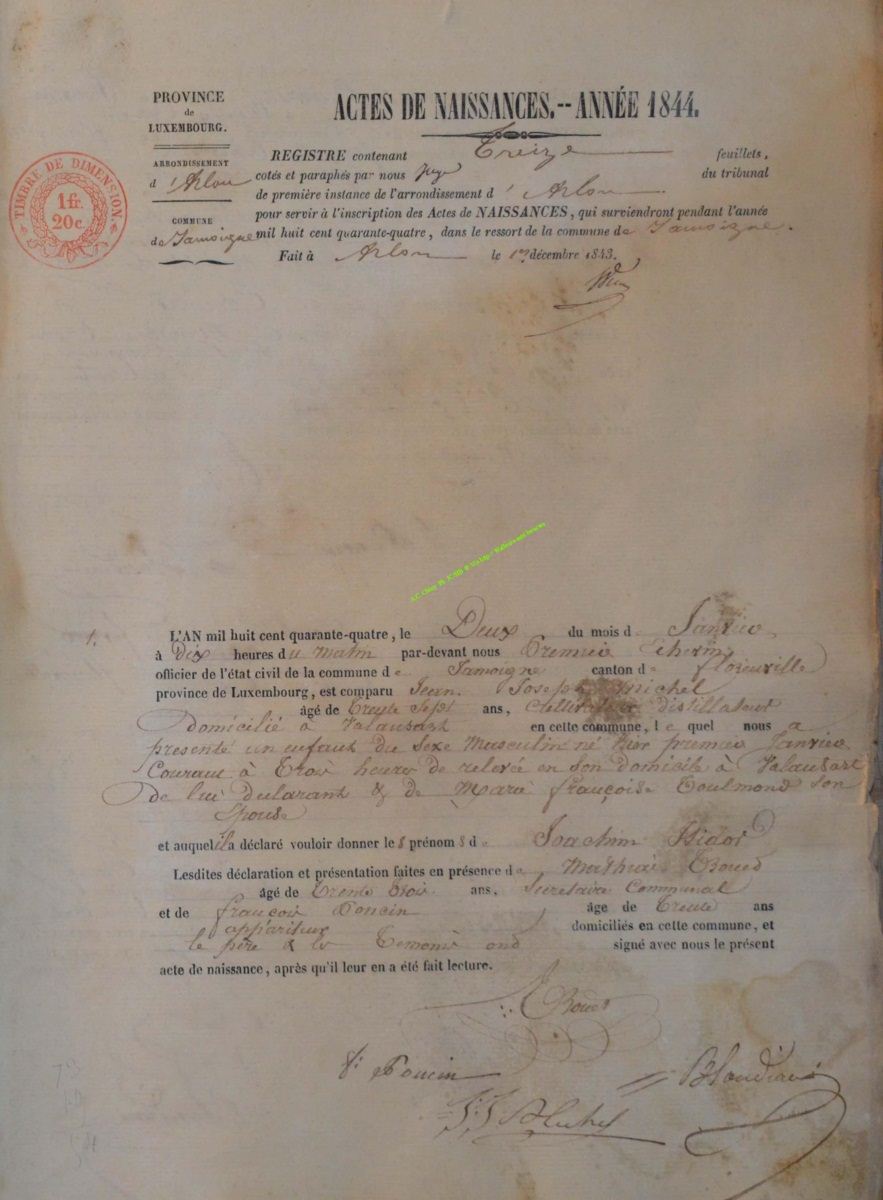 PROVINCE
de
LUXEMBOURG.
ARRONDISSEMENT
d'Arlon
COMMUNE
de Jamoigne
TIMBRE DE DIMENSION.
1 fr.
20 c.
ACTES DE NAISSANCES.--ANNÉE 1844.
REGISTRE contenant Treize feuillets,
cotés et paraphés par nous juge du tribunal
de première instance de l'arrondissement d'Arlon
pour servir à l'inscription des Actes de NAISSANCES, qui surviendront pendant l'année
mil huit cent quarante-quatre, dans le ressort de la commune de Jamoigne.
Fait à Arlon le 1er décembre 1843.
1.
L'AN mil huit cent quarante-quatre, le Deux du mois d Janvier
à Dix heures du matin par-devant nous
officier de l'état civil de la commune de Jamoigne canton de florenville
province de Luxembourg, est comparu Jean Joseph
âgé de Trente Sept ans, distillateur
Domicilié à Valansart en cette commune, lequel nous a
presenté un enfant du Sexe Masculin né hier premier Janvier
Courant à Trois heures de relevée en son domicile à Valansart
de lui Déclarant & de françoise son
Epouse
et auquel il a déclaré vouloir donner les prénoms de Joachim Isidor
Lesdites déclaration et présentation faites en présence de Mathias
âgé de Trente Trois ans, Secretaire Communal
et de françois Poncin âge de Trente ans
appariteur domiciliés en cette commune, et
le père & les Temoins ont signé avec nous le présent
acte de naissance, après qu'il leur en a été fait lecture.
Poncin